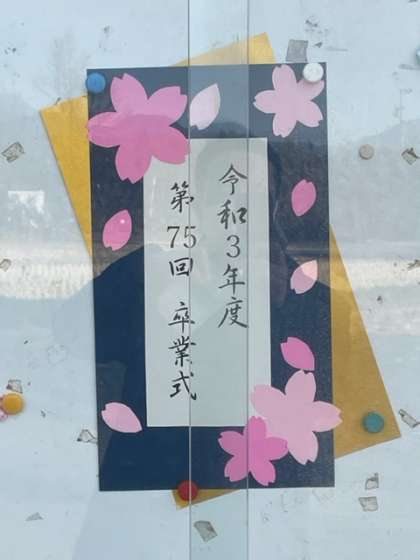 令和3年度
第75回 卒業式